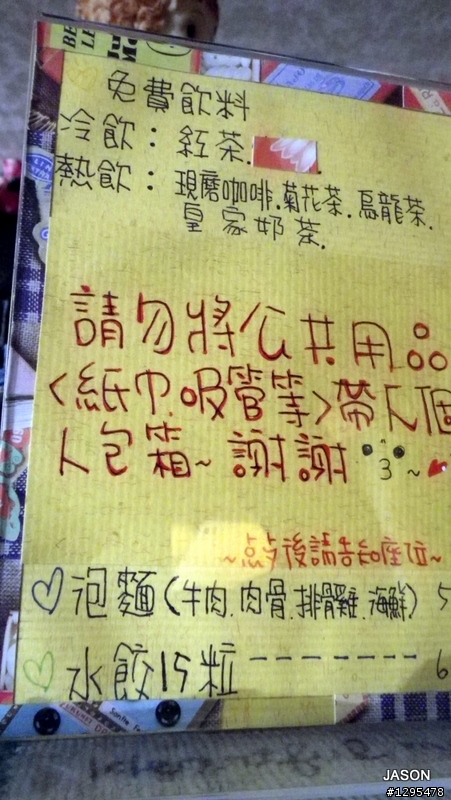 免費飲料
冷飲：紅茶.
熱飲：現磨咖啡.菊花茶.烏龍茶.
皇家奶茶.
請勿將公共用品
<紙巾.吸管等>帶入個
人包箱~謝謝 3~
~點後請告知座位~
泡麵(牛肉.肉骨.排骨雞.海鮮) 5
水餃15粒-------- 6
JASON
#1295478